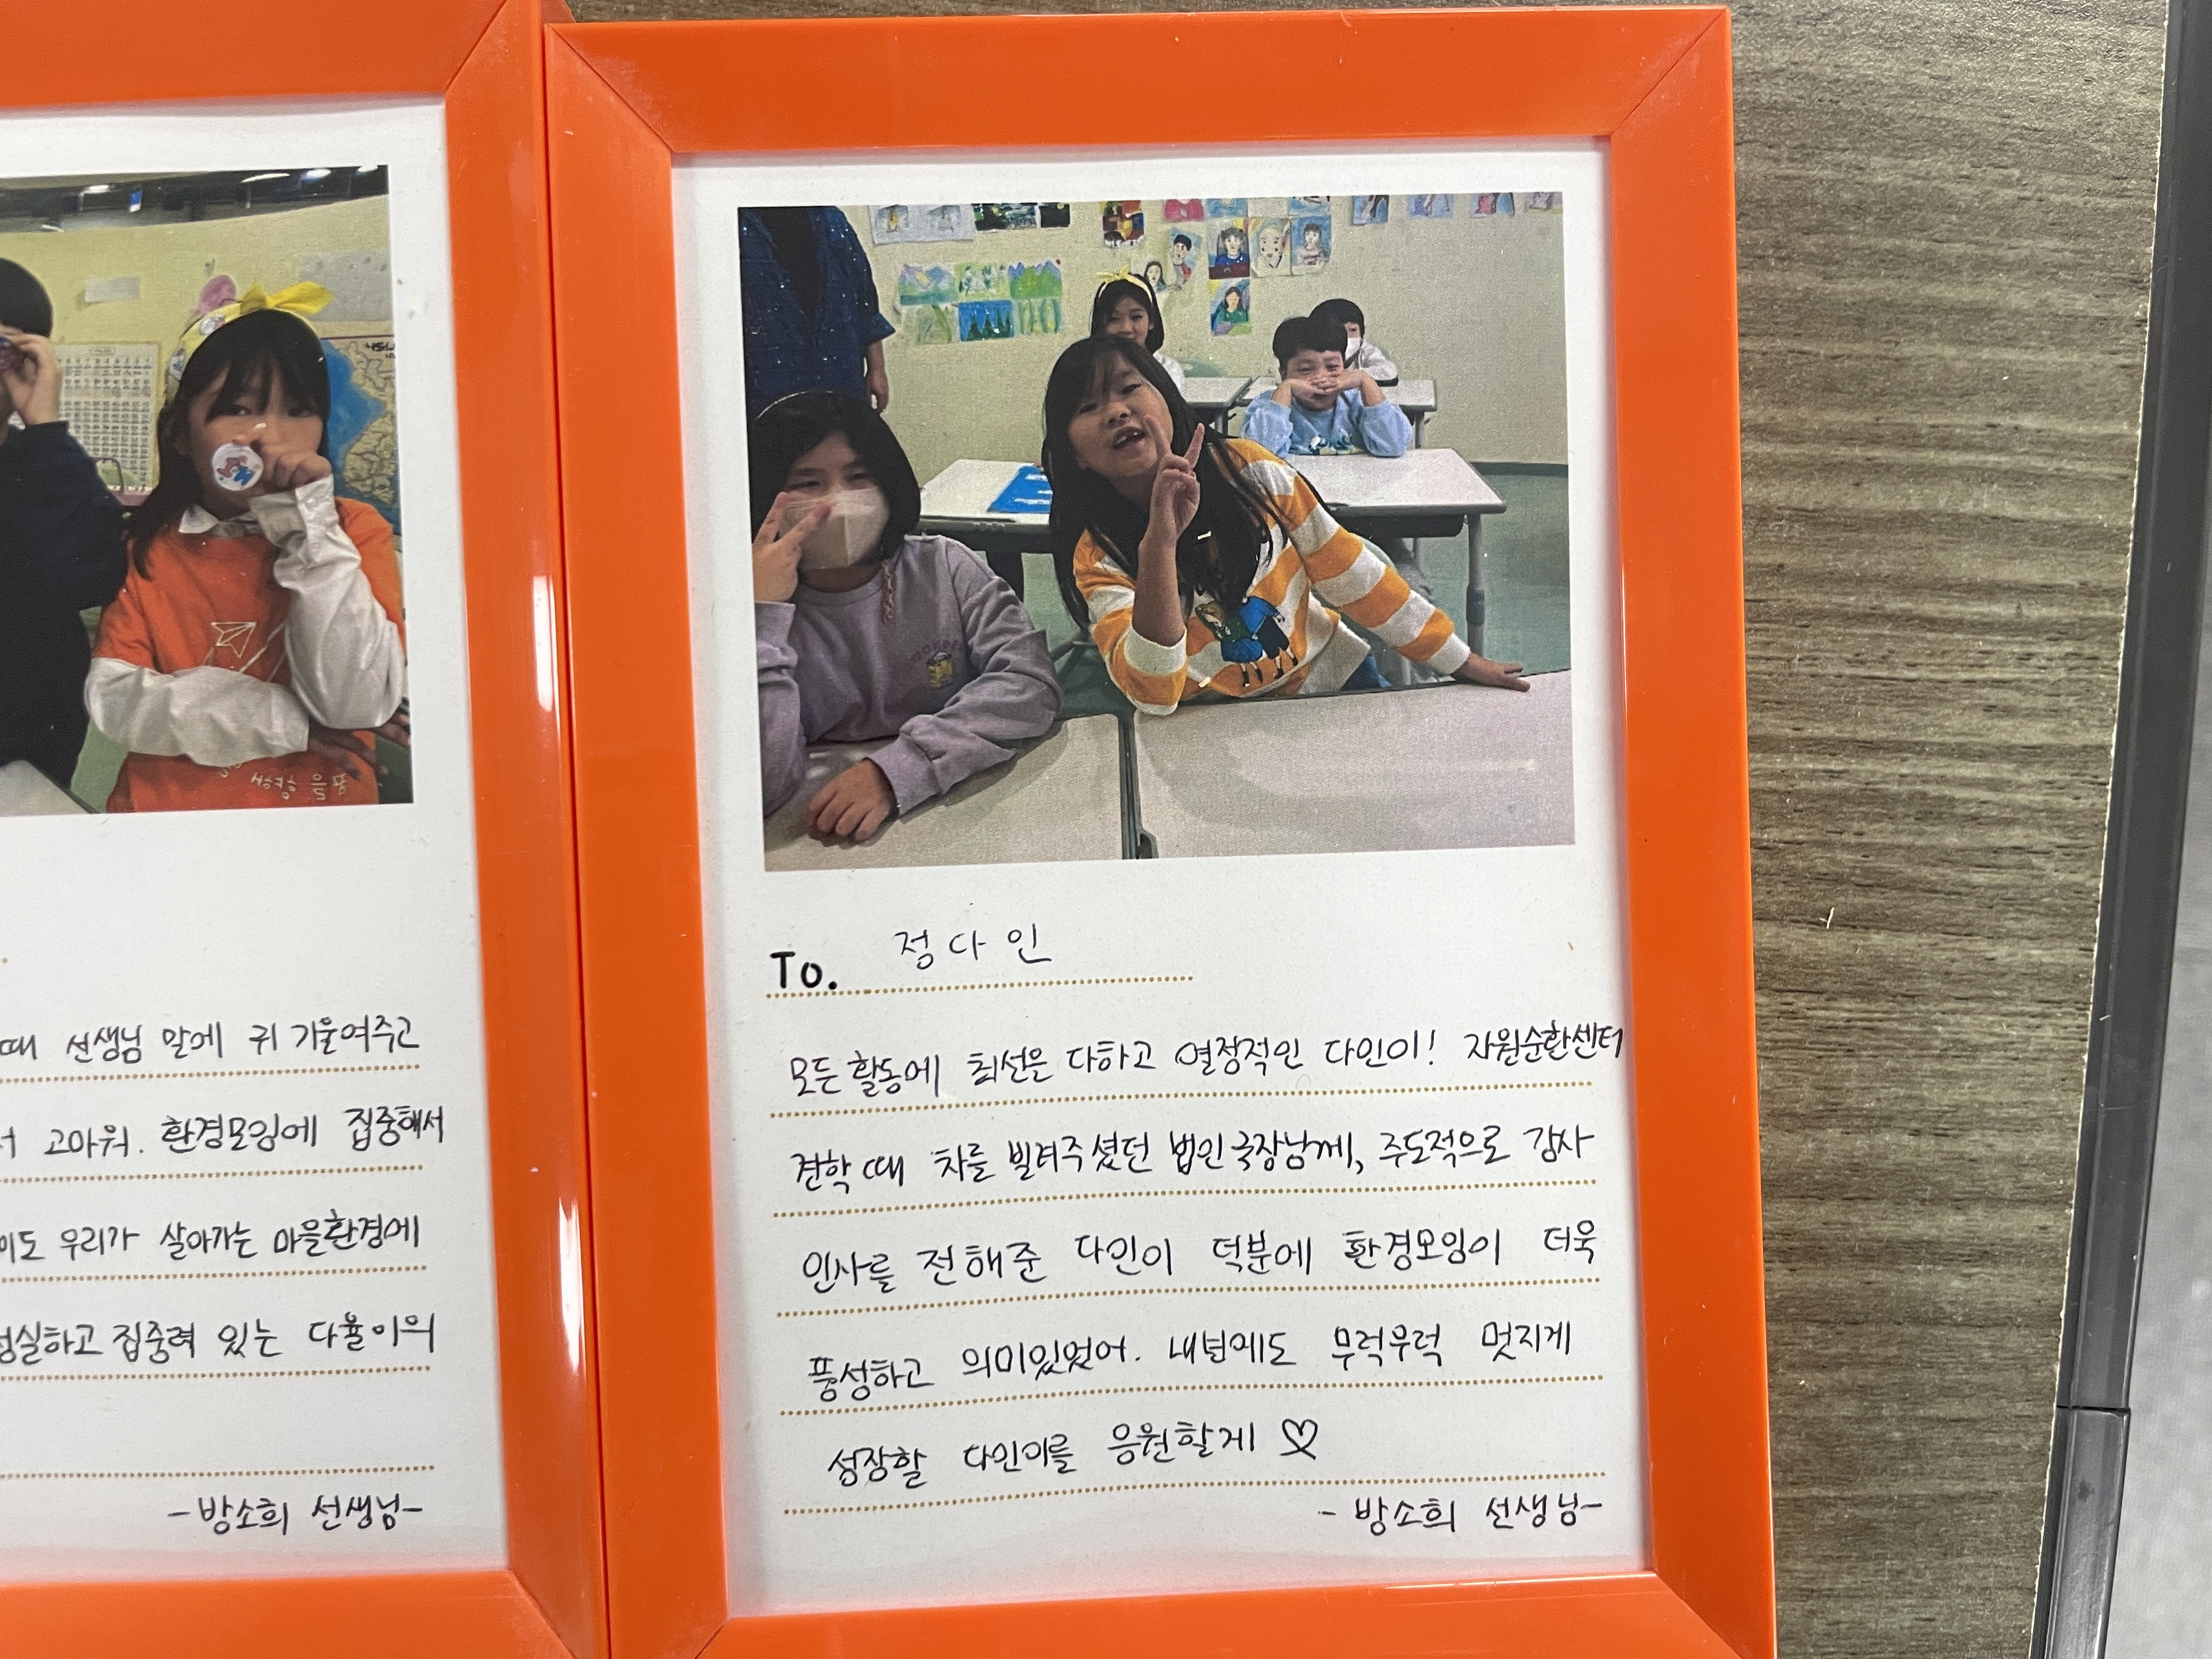 때 선생님 말에 귀 기울여주고
서 고마워. 환경모임에 집중해서
이도 우리가 살아가는 마을환경에
성실하고 집중력 있는 다율이의
-방소희 선생님-
To. 정다인
모든 활동에 최선은 다하고 열정적인 다인이! 자원순환센터
견학 때 차를 빌려주셨던 법인국장님께, 주도적으로 감사
인사를 전해준 다인이 덕분에 환경모임이 더욱
풍성하고 의미있었어. 내년에도 무럭무럭 멋지게
성장할 다인이를 응원할게 ♡
- 방소희 선생님-